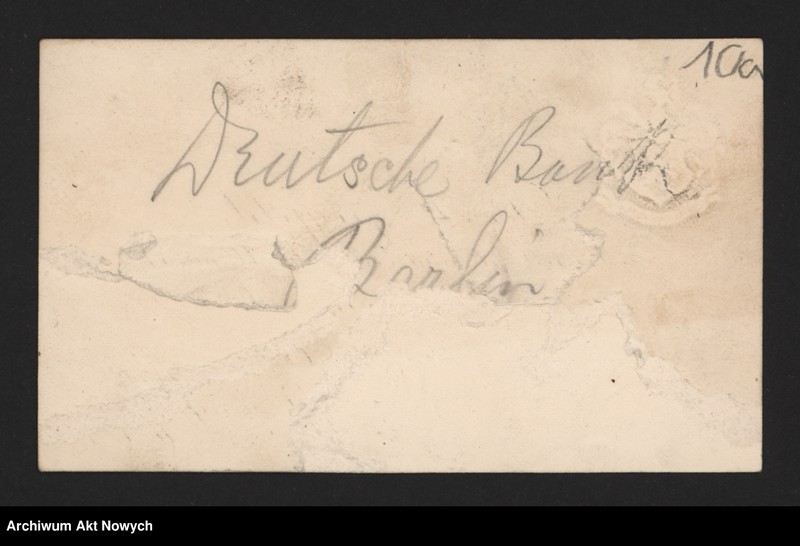 10a
Deutsche Bank
Berlin
Archiwum Akt Nowych